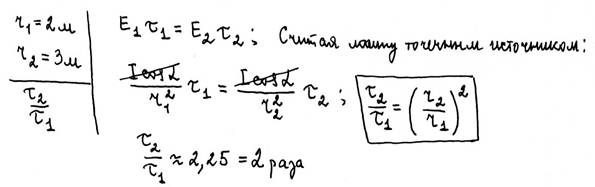 r₁ = 2м
r₂ = 3м
τ₂/τ₁
E₁τ₁ = E₂τ₂; Считая лампу точечным источником:
I cos α/r₁² τ₁ = I cos α/r₂² τ₂; τ₂/τ₁ = (r₂/r₁)²
τ₂/τ₁ ≈ 2,25 = 2 раза